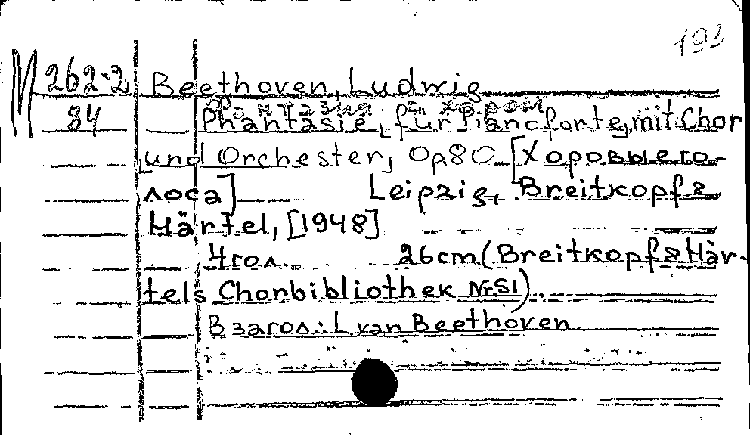 192
М 262-2 Beethoven, Ludwig
84 Phantasie, für Pianoforte, mit Chor
und Orchester, Op 80 [Хоровые го-
лоса] Leipzig, Breitkopf &
Härtel, [1948]
4 гол. 26 cm (Breitkopf & Här-
tels Chorbibliothek Nr 51)
В загол.: L van Beethoven